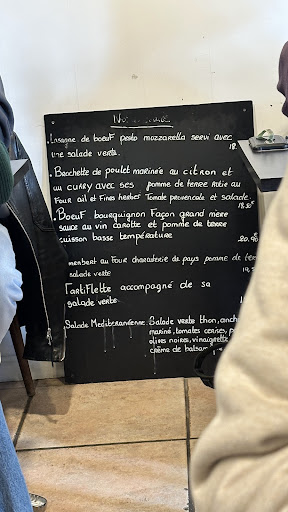 Lasagne de boeuf pesto mozzarella servi avec
une salade verte. 18.
Brochette de poulet marinée au citron et
au curry avec ses pomme de terre rotie au
Four ail et Fines herbes Tomate provencale et salade
Boeuf bourguignon Façon grand mère
sauce au vin carotte et pomme de terre
cuisson basse température 20.
membert au Four charcuterie de pays pomme de ter
salade verte
Tartiflette accompagné de sa
salade verte.
Salade Mediterranéenne: Salade verte thon, anch
mariné, tomates cerises, p
olives noires, vinaigrette
crème de balsam